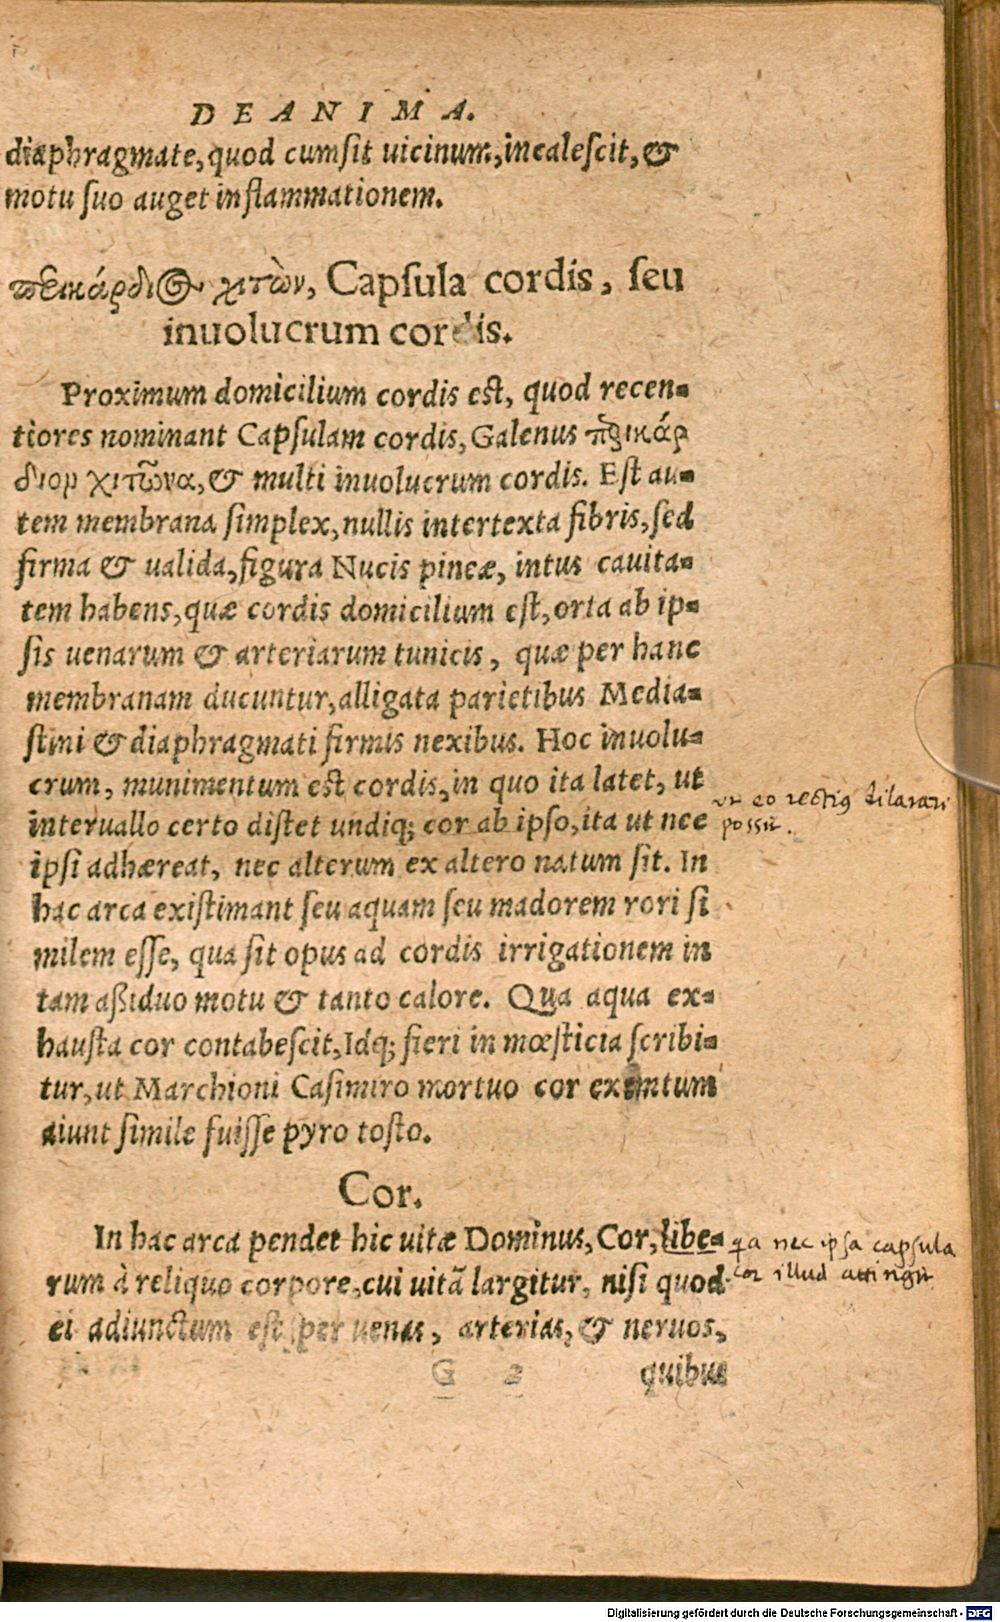 DE ANIMA.
diaphragmate, quod cum sit uicinum, incalescit, &
motu suo auget inflammationem.
περικάρδιος χιτὼν, Capſula cordis, ſeu
inuolucrum cordis.
Proximum domicilium cordis eſt, quod recen-
tiores nominant Capſulam cordis, Galenus περικάρ
διον χιτῶνα, & multi inuolucrum cordis. Eſt au-
tem membrana ſimplex, nullis intertexta fibris, ſed
firma & ualida, figura Nucis pineæ, intus cauita-
tem habens, quæ cordis domicilium eſt, orta ab ip-
ſis uenarum & arteriarum tunicis, quæ per hanc
membranam ducuntur, alligata parietibus Media-
ſtini & diaphragmati firmis nexibus. Hoc inuolu-
crum, munimentum eſt cordis, in quo ita latet, ut
interuallo certo diſtet undiq; cor ab ipſo, ita ut nec
ut eo rectius dilatari
possit.
ipſi adhæreat, nec alterum ex altero natum ſit. In
hac arca exiſtimant ſeu aquam ſeu madorem rori ſi
milem eſſe, qua ſit opus ad cordis irrigationem in
tam aßiduo motu & tanto calore. Qua aqua ex-
hauſta cor contabeſcit, Idq; fieri in mœſticia ſcribi-
tur, ut Marchioni Caſimiro mortuo cor exemtum
aiunt ſimile fuiſſe pyro toſto.
Cor.
In hac arca pendet hic uitæ Dominus, Cor, libe-
rum à reliquo corpore, cui uitā largitur, niſi quod
qa nec ipsa capsula
cor illud attingit
ei adiunctum eſt per uenas, arterias, & neruos,
G 2 quibus
Digitalisierung gefördert durch die Deutsche Forschungsgemeinschaft - DFG